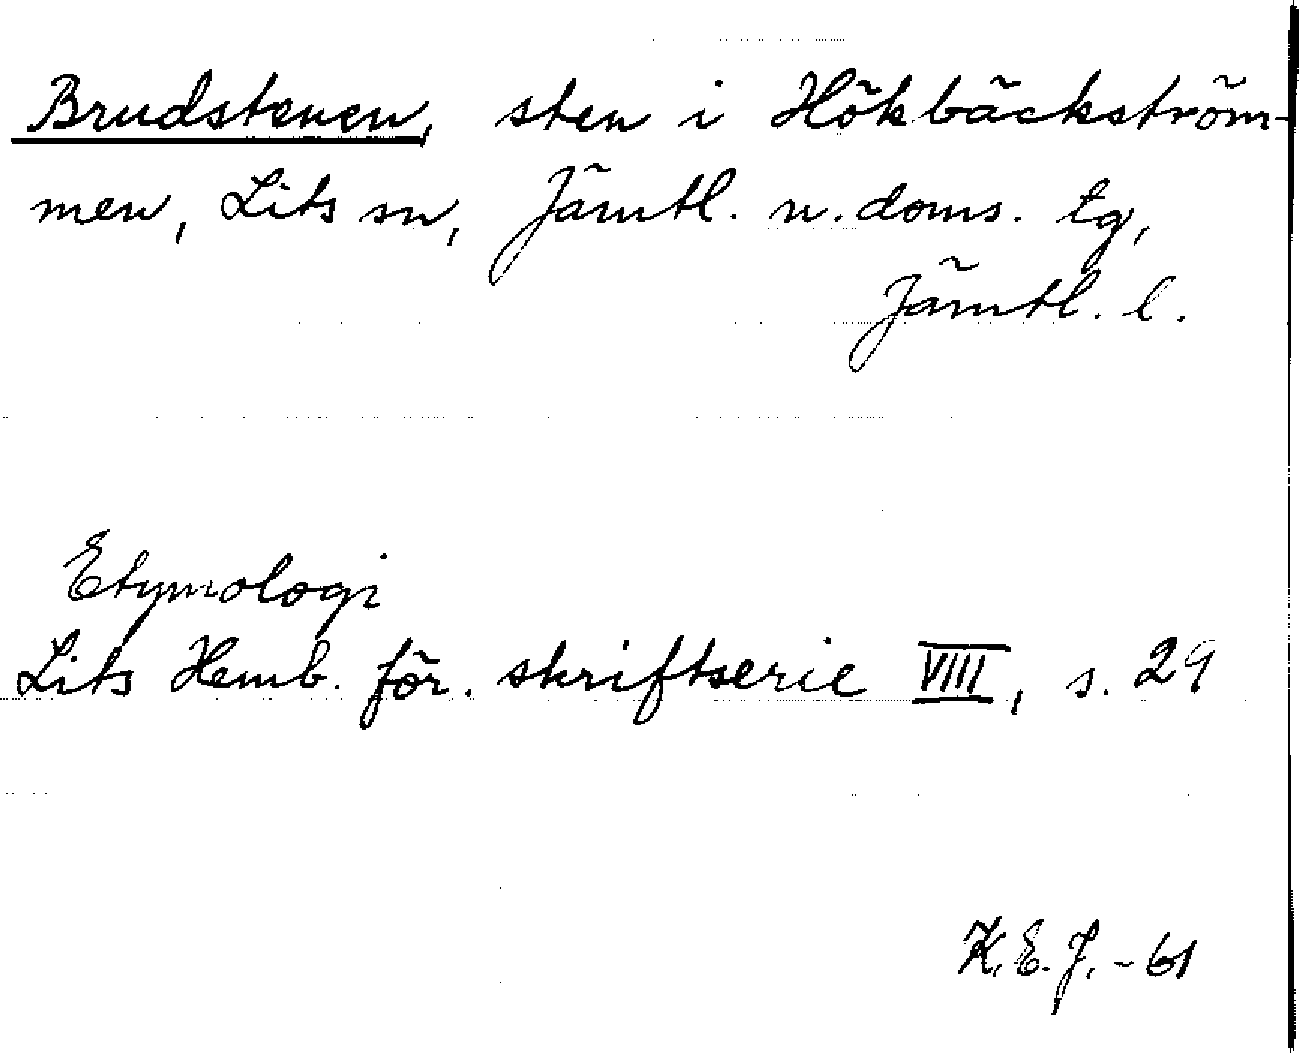 Brudstenen, sten i Hökbäckström-
men, Lits sn, Jämtl. n. doms. tg,
Jämtl. l.
Etymologi
Lits Hemb. för. skriftserie VIII, s. 29
K. E. J. - 61